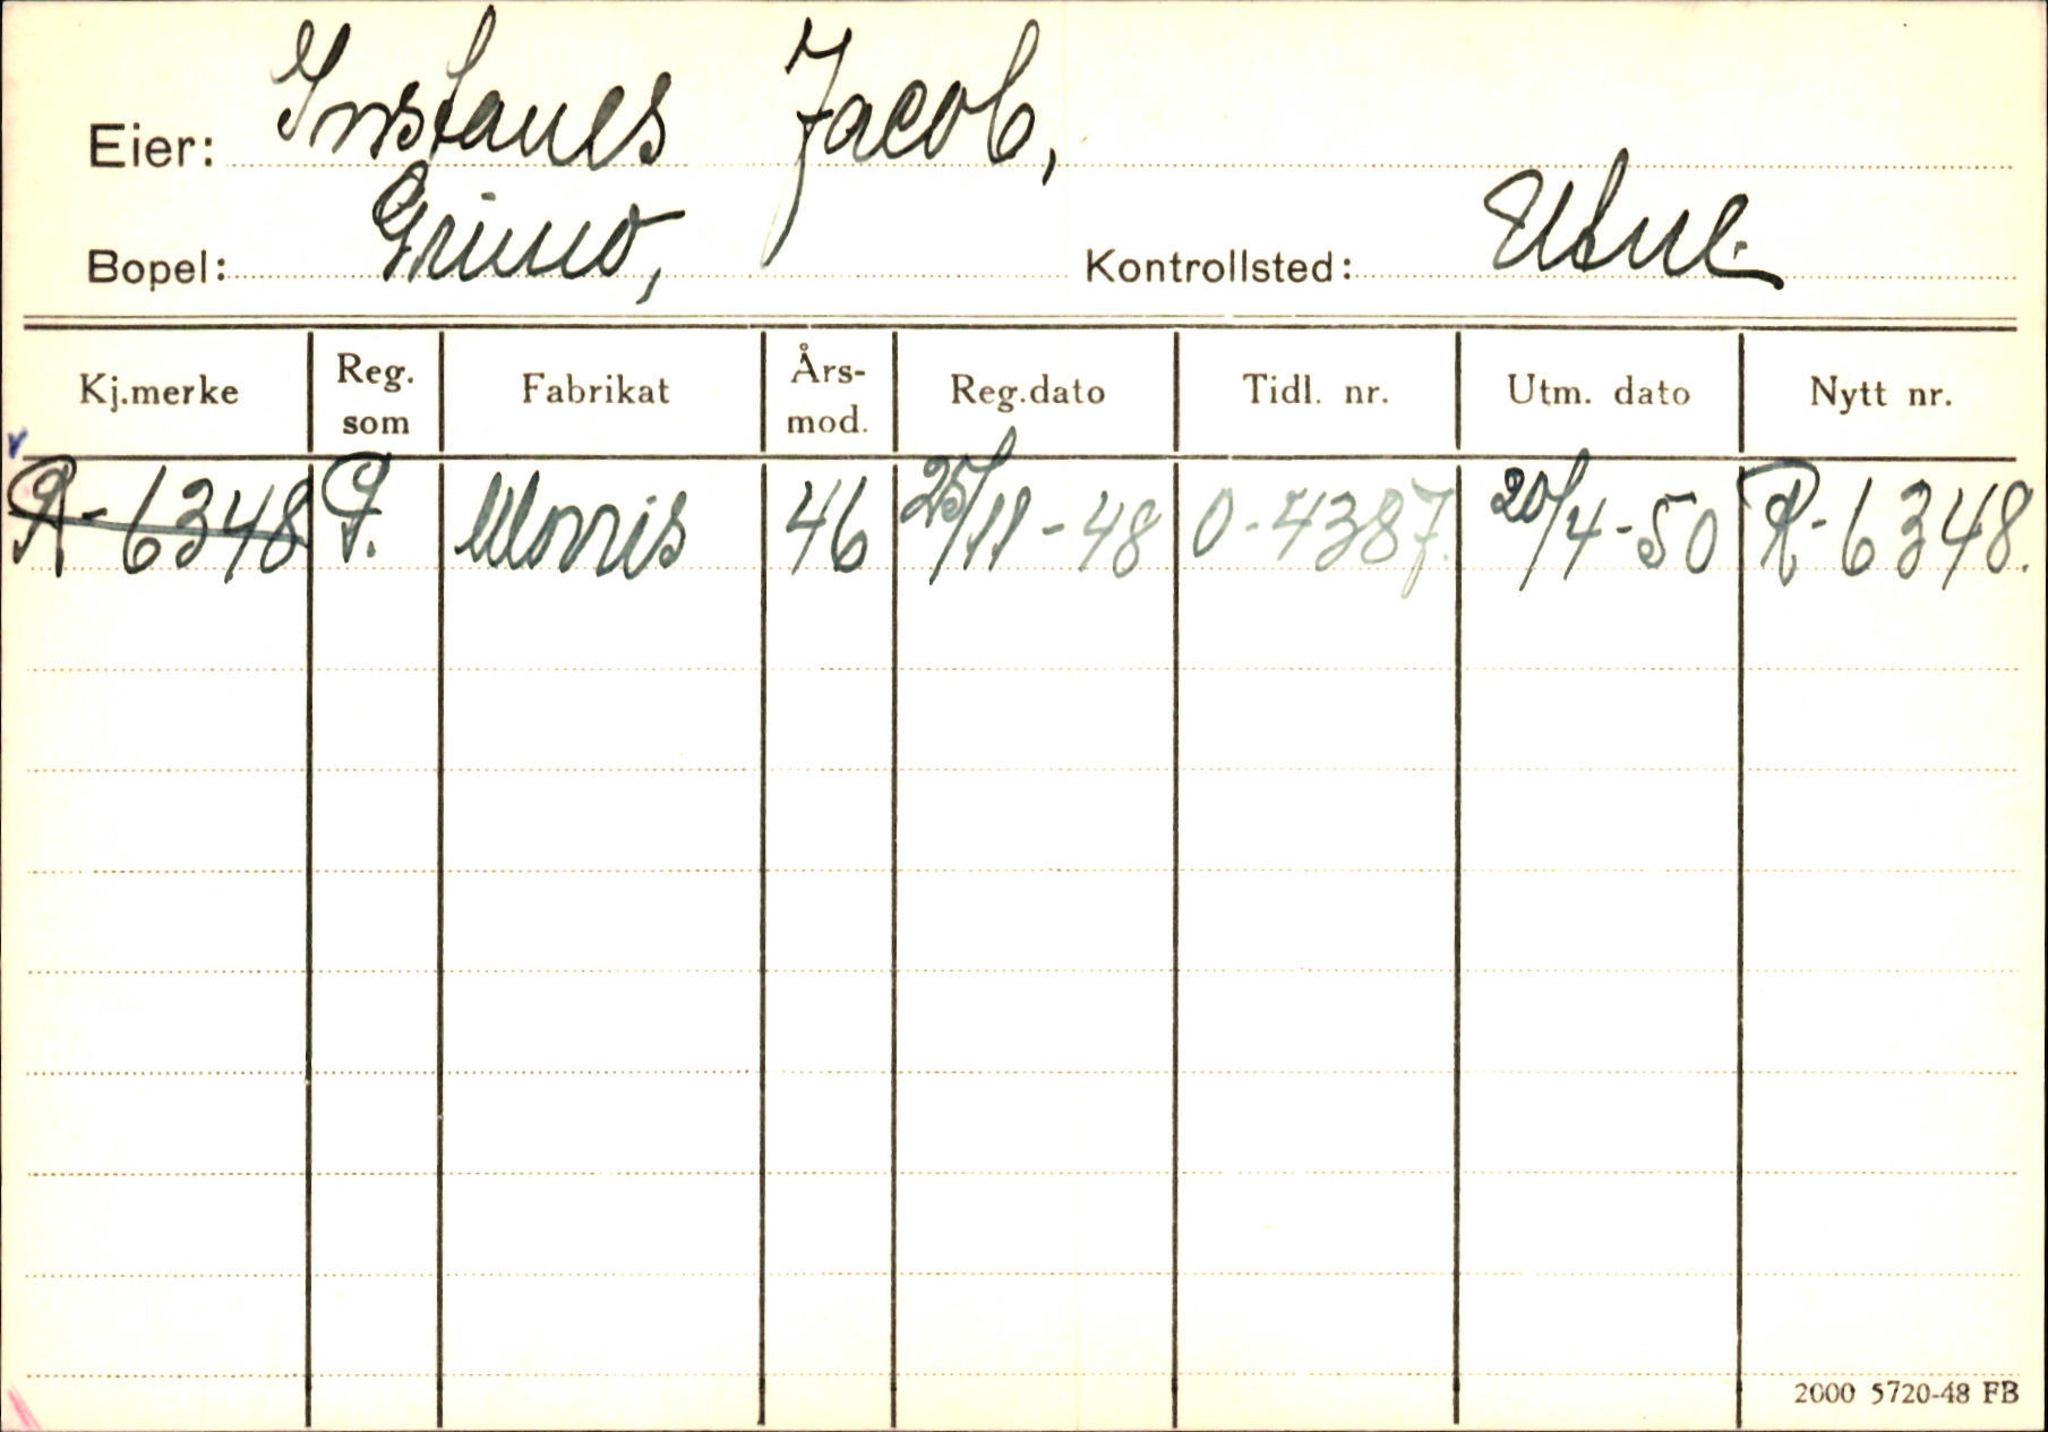 Eier: Instanes Jacob,
Bopel: Grimo, Kontrollsted: Utne.
Kj.merke Reg. som Fabrikat Års-mod. Reg.dato Tidl. nr. Utm. dato Nytt nr.
R-6348 P. Morris 46 25/11-48 O-4387. 20/4-50 R-6348.
2000 5720-48 FB